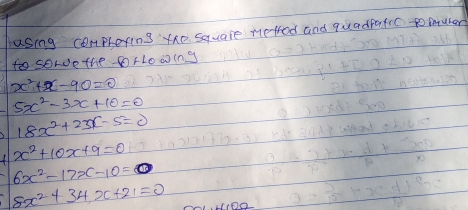 using completing the square method and quadratic formular
to solve the following
x²+x-90=0
5x²-3x+10=0
18x²+23x-5=0
x²+10x+9=0
6x²-17x-10=0
8x²+34x+21=0